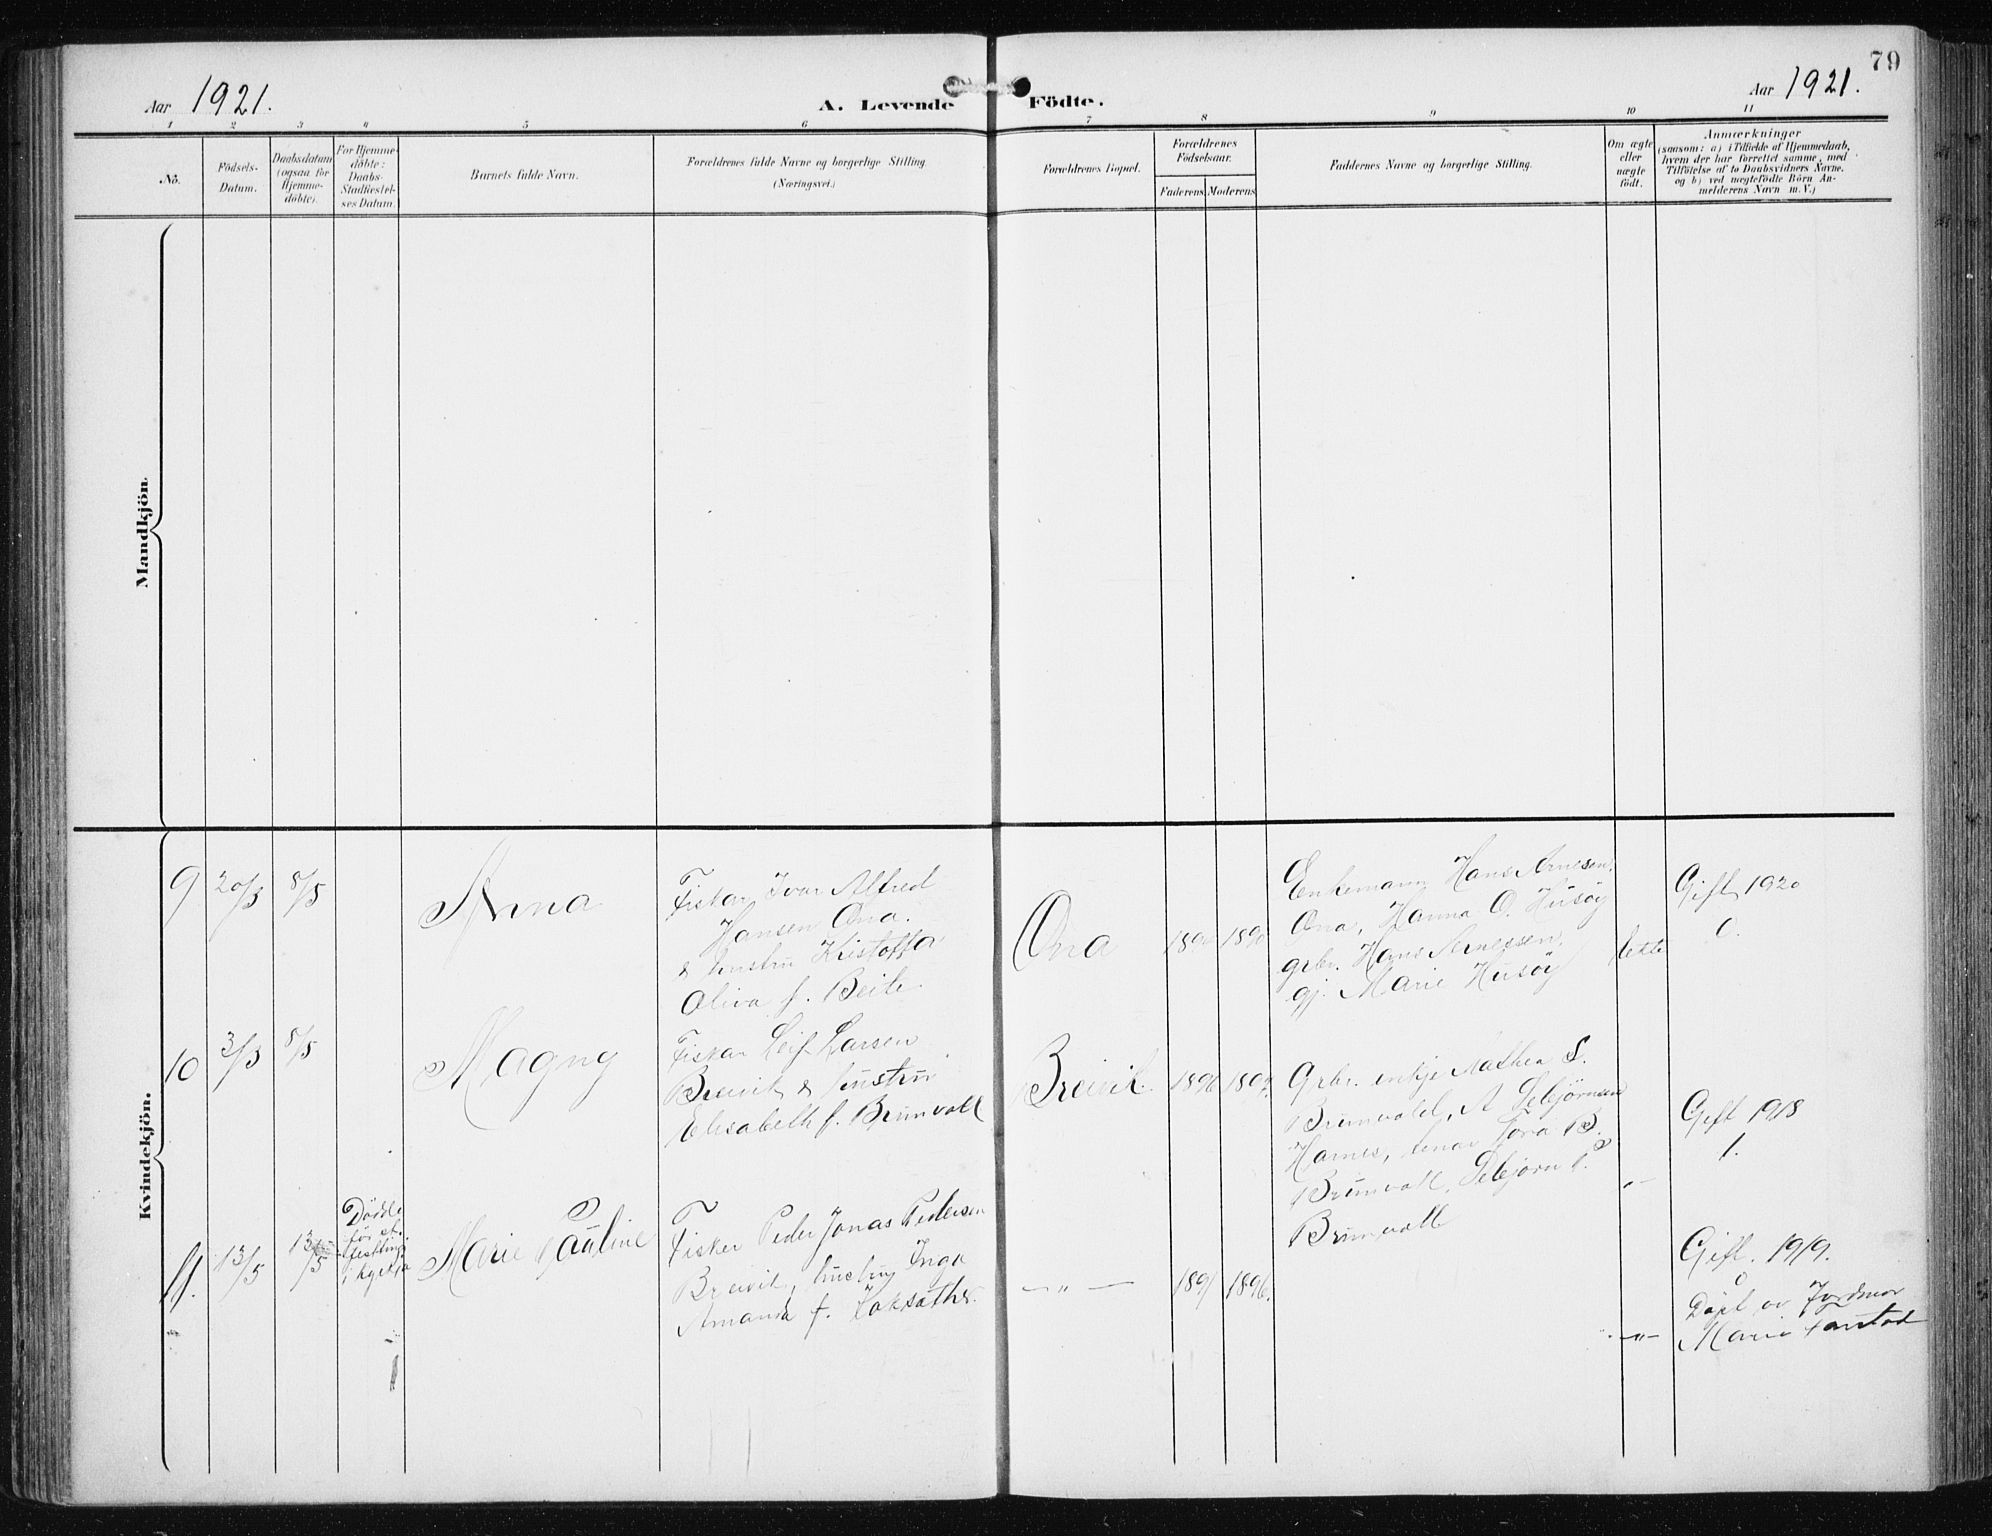 79
Aar 1921.
A. Levende Födte.
Aar 1921.
1 2 3 4 5 6 7 8 9 10 11
No.
Födsels-
Datum.
Daabsdatum
(ogsaa for
Hjemme-
döbte).
For Hjemme-
döbte:
Daabs-
Stadfæstel-
ses Datum.
Barnets fulde Navn.
Forældrenes fulde Navne og borgerlige Stilling.
(Næringsvei.)
Forældrenes Bopæl.
Forældrenes
Födselsaar.
Faderens Moderens
Faddernes Navne og borgerlige Stilling.
Om ægte
eller
uægte
födt.
Anmærkninger
(saasom: a) i Tilfælde af Hjemmedaab,
hvem der har forrettet samme, med
Tilföielse af to Daabsvidners Navne.
og b) ved uægtefödte Börn An-
melderens Navn m. V.)
Mandkjön.
Kvindekjön.
9 20/3 8/5
Anna
Fisker Ivar Alfred
Hansen Ona.
& hustru Kristoffa
Oliva f. Beite
Ona
Enkemann Hans Arnesen,
Ona, Hanna O. Husöy
grbr. Hans Arnessen,
gj. Marie Husöy
ekte
Gift 1920
0.
10 3/3 8/5
Magny
Fisker Leif Larsen
Breivik & hustru
Elisabeth f. Brunvoll
Breivik 1896
Grbr. enkje Mathea S.
Brunvoll, A Sebjörnsen
Harnes, Tora B.
Brunvoll, Sebjörn P.
Brunvoll
-"-
Gift 1918
1.
11. 13/5 13/5
Dödde
för st.
festing
i kyrkja
Marie Pauline
Fisker Peder Jonas Pedersen
Breivik, hustru Inga
Amanda f.
-"- 1896.
-"-
Gift. 1919.
0
Döpt av Jordmor
Marie